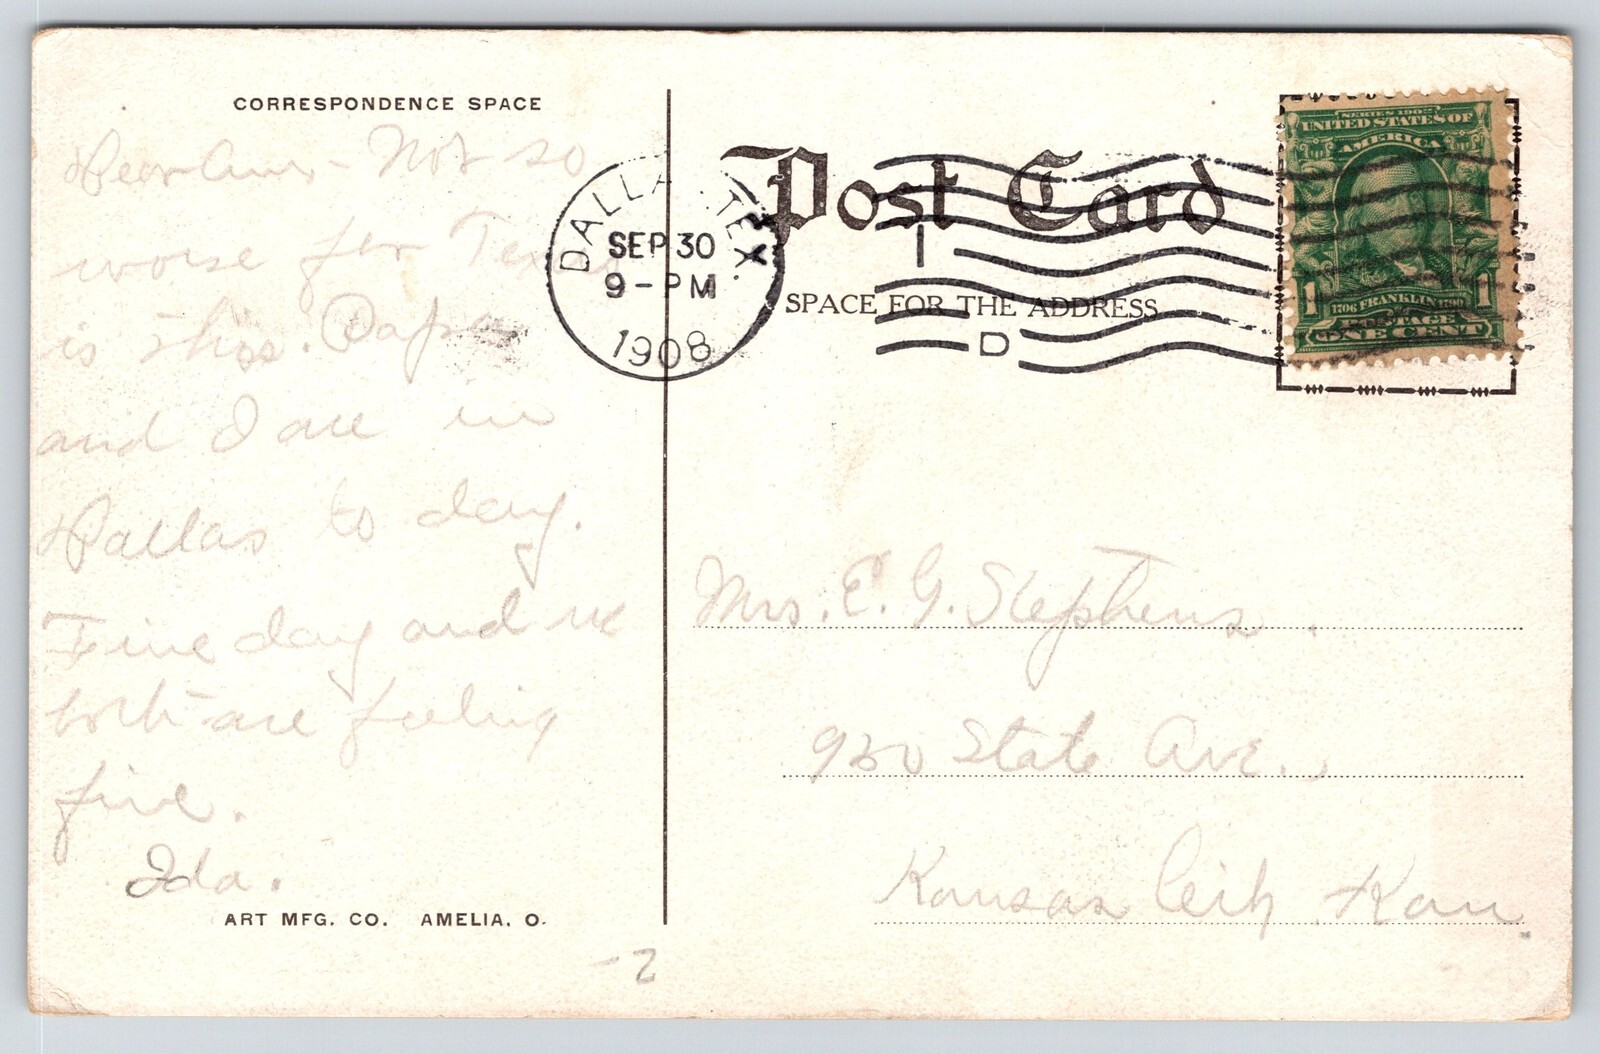 CORRESPONDENCE SPACE
Dear - Not so
worse for Texas
is this. Papa
and I are in
Dallas to day.
Fine day and we
both are feeling
fine.
Ida.
ART MFG. CO. AMELIA, O.
-2
DALLAS, TEX.
SEP 30
9-PM
1908
Post Card
SPACE FOR THE ADDRESS
1
D
SERIES 1902
UNITED STATES OF
AMERICA
1 1706 FRANKLIN 1790 1
POSTAGE
ONE CENT
Mrs. E. G. Stephens.
930 State Ave.,
Kansas City, Kan.